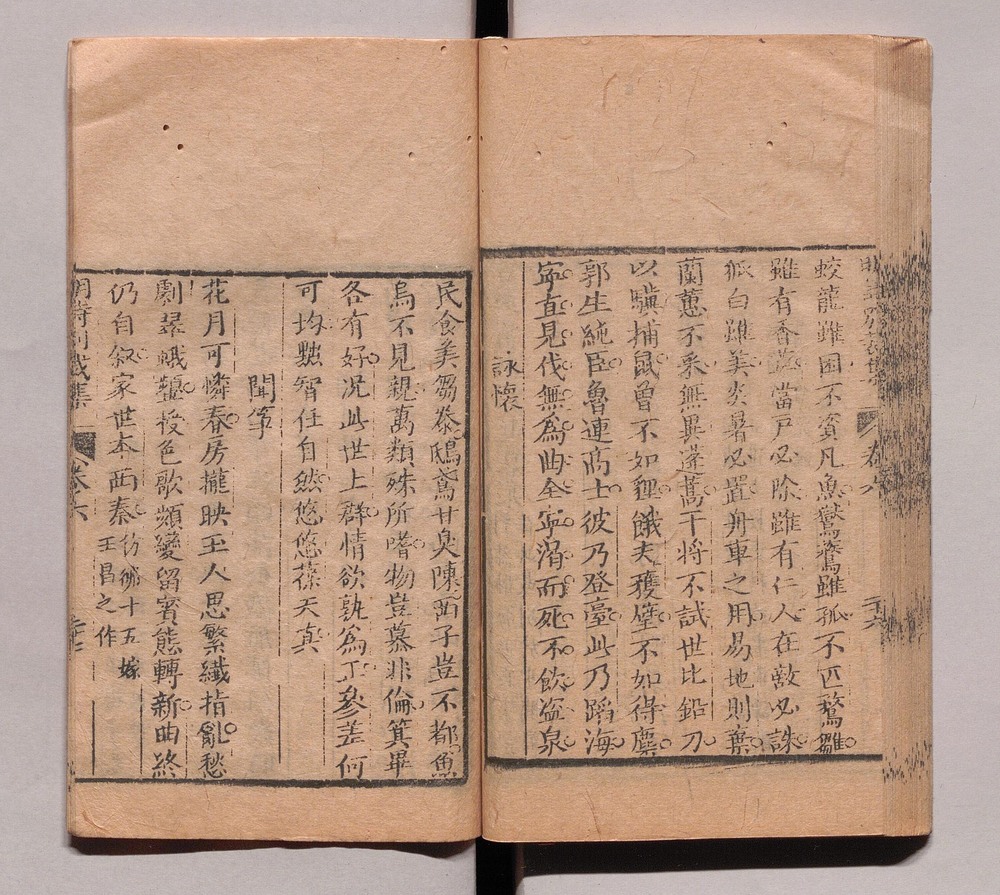 蛟龍雖困不資凡魚鸑鷟雖孤不匹鶩雛
雖有香茝當戸必除雖有仁人在敵必誅
狐白雖美炎暑必置舟車之用易地則棄
蘭蕙不采無異蓬蒿干將不試世比鉛刀
以驥捕鼠曾不如狸餓夫獲璧不如得麋
郭生純臣魯連高士彼乃登臺此乃蹈海
寜直見伐無爲曲全寜渴而死不飲盜泉
詠懷
卷八
二十六
民食美芻豢鴟鳶甘臭陳西子豈不都魚
鳥不見親萬類殊所嗜物豈慕非倫箕畢
各有好况此世上群情欲孰爲正參差何
可均黜智任自然悠悠葆天真
聞箏
花月可憐春房櫳映玉人思繁纖指亂愁
劇翠蛾顰授色歌頻變留賓態轉新曲終
仍自叙家世本西秦彷彿十五嫁王昌之作
明詩別裁集
卷六